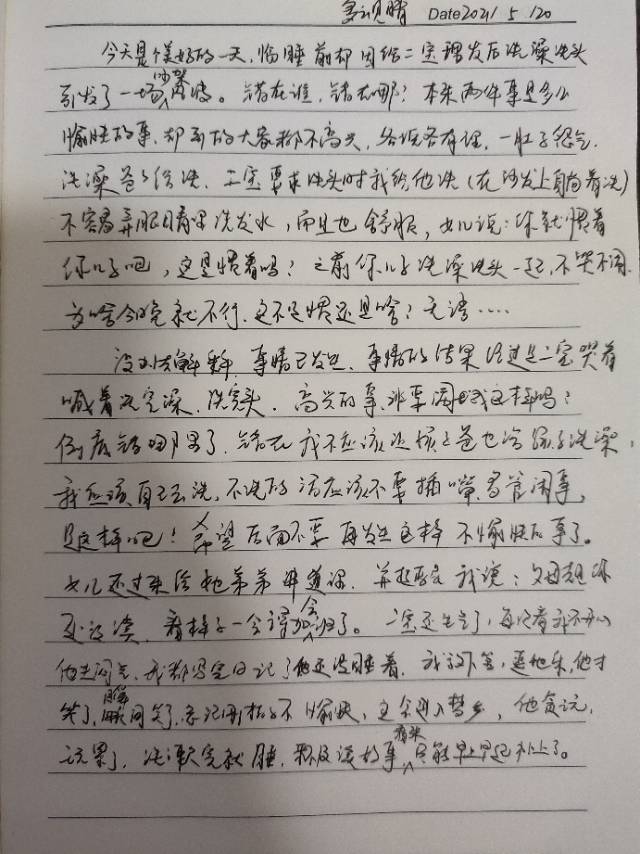 多云见晴 Date 2021/5/20
今天是个美好的一天,临睡前却因给二宝理发后洗澡洗头
引发了一场沙發风波。错在谁,错在哪?本来两件事是多么
愉快的事,却弄的大家都不高兴,各说各有理,一肚子怨气.
洗澡爸爸给洗,二宝要求洗头时我给他洗(在沙发上躺着洗)
不容易弄眼睛里洗发水,而且也舒服,女儿说:你就惯着
你儿子吧,这是惯着吗?之前你儿子洗澡洗头一起,不哭不闹
为啥今晚就不行,这不是惯还是啥?无语....
没办法解释,事情已发生,事情的结果经过是二宝哭着
喊着洗完澡,洗完头。高兴的事,非要闹成这样吗?
到底错哪里了,错在我不应该让孩子爸也给孩子洗澡,
我应该自己去洗,不洗的话应该不要插嘴,多管闲事,
是这样吧!希望后面不要再发生这样不愉快的事了。
女儿还过来给她弟弟讲道理,并提醒我说:父母
,看样子一会得
二宝还生气了,每次看我不开心
他生闷气,我都写完日记了他还没睡着,我放下笔,逗他乐,他才
笑了,瞬间笑了,忘记刚才的不愉快,这会进入梦乡,他贪玩,
玩累了,洗漱完就睡,没及读的书,看来只能早上早起补上了。